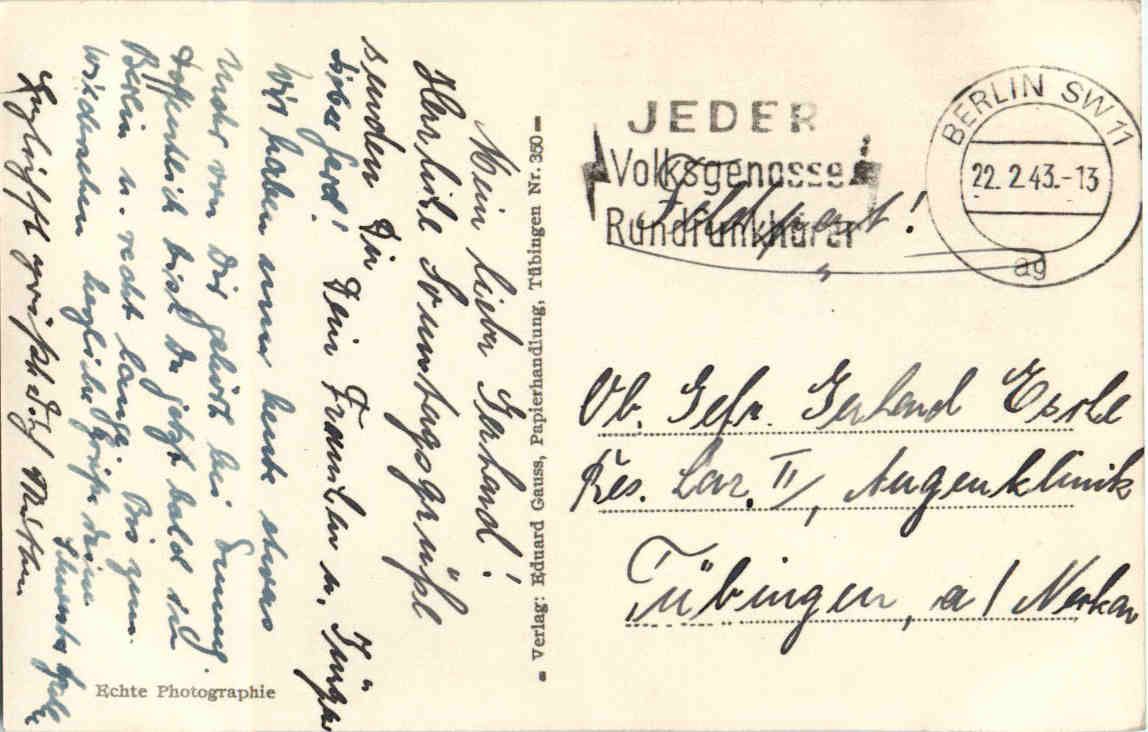 Mein lieber Gerhard!
Herzliche Sonntagsgrüße
senden Dir Dein Frauchen u.
Lieber Gerd!
Wir haben nun heute etwas
mehr von Dir gehört bei
Hoffentlich bist Du jetzt bald in
Berlin u. recht lange. Bis zum
Wiedersehen herzliche Grüße Deine
grüßt Dich
Echte Photographie
Verlag: Eduard Gauss, Papierhandlung, Tübingen Nr. 350
JEDER
Volksgenosse
Rundfunkhörer
Feldpost!
BERLIN SW 11
22.2.43.-13
ag
Ob. Gefr. Gerhard
Res. Laz. II, Augenklinik
Tübingen, a/Neckar